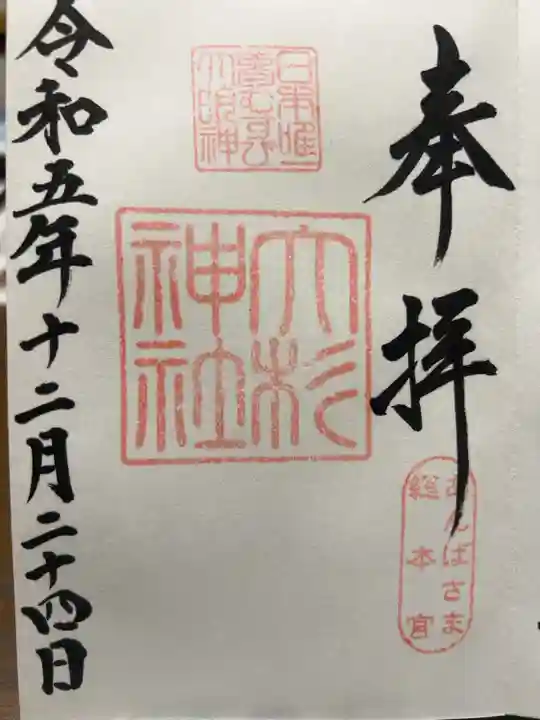 奉拝
あんばさま
総本宮
日本唯一
夢むすび
大明神
大杉
神社
令和五年十二月二十四日